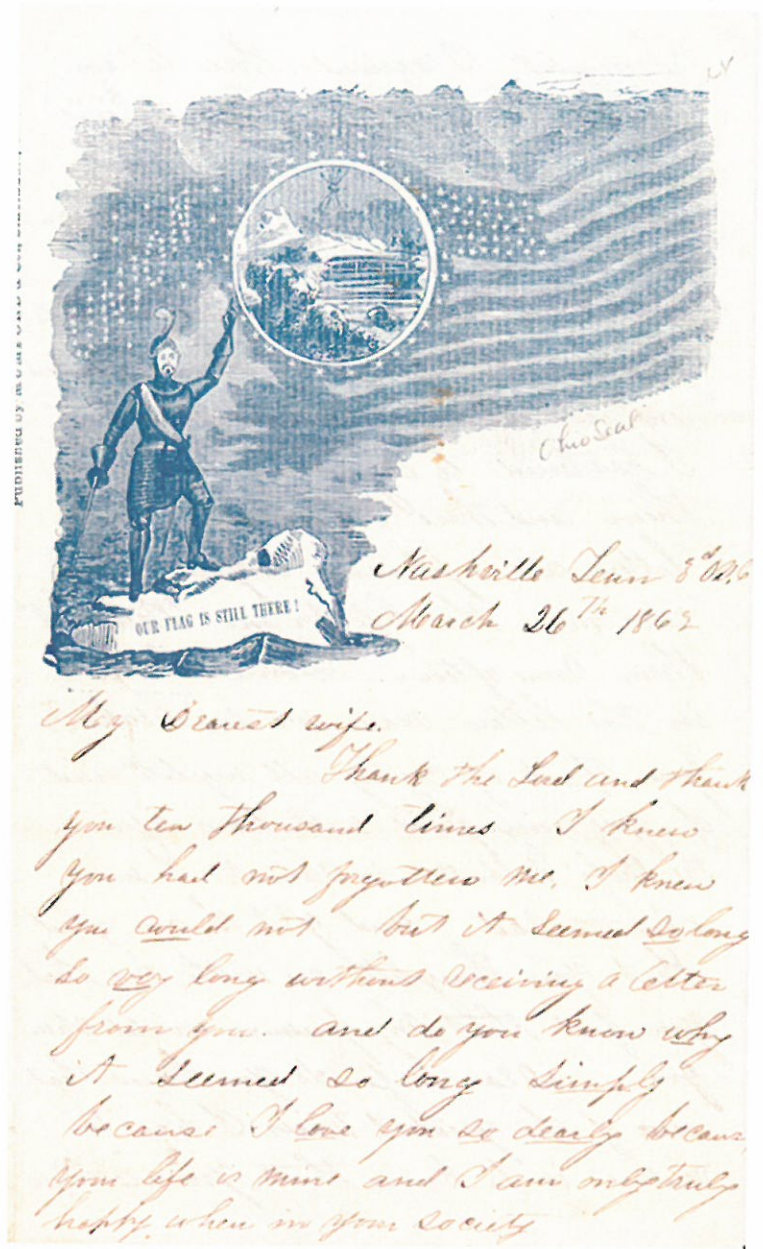 Published by
Ohio Seal
OUR FLAG IS STILL THERE!
Nashville Tenn 3d
March 26TH 1862
My Dearest wife.
Thank the Lord and thank
you ten thousand times I knew
you had not forgotten me. I knew
you would not but it seemed so long
so very long without receiving a letter
from you. and do you know why
it seemed so long simply
because I love you so dearly becaus
your life is mine and I am only truly
happy when in your society